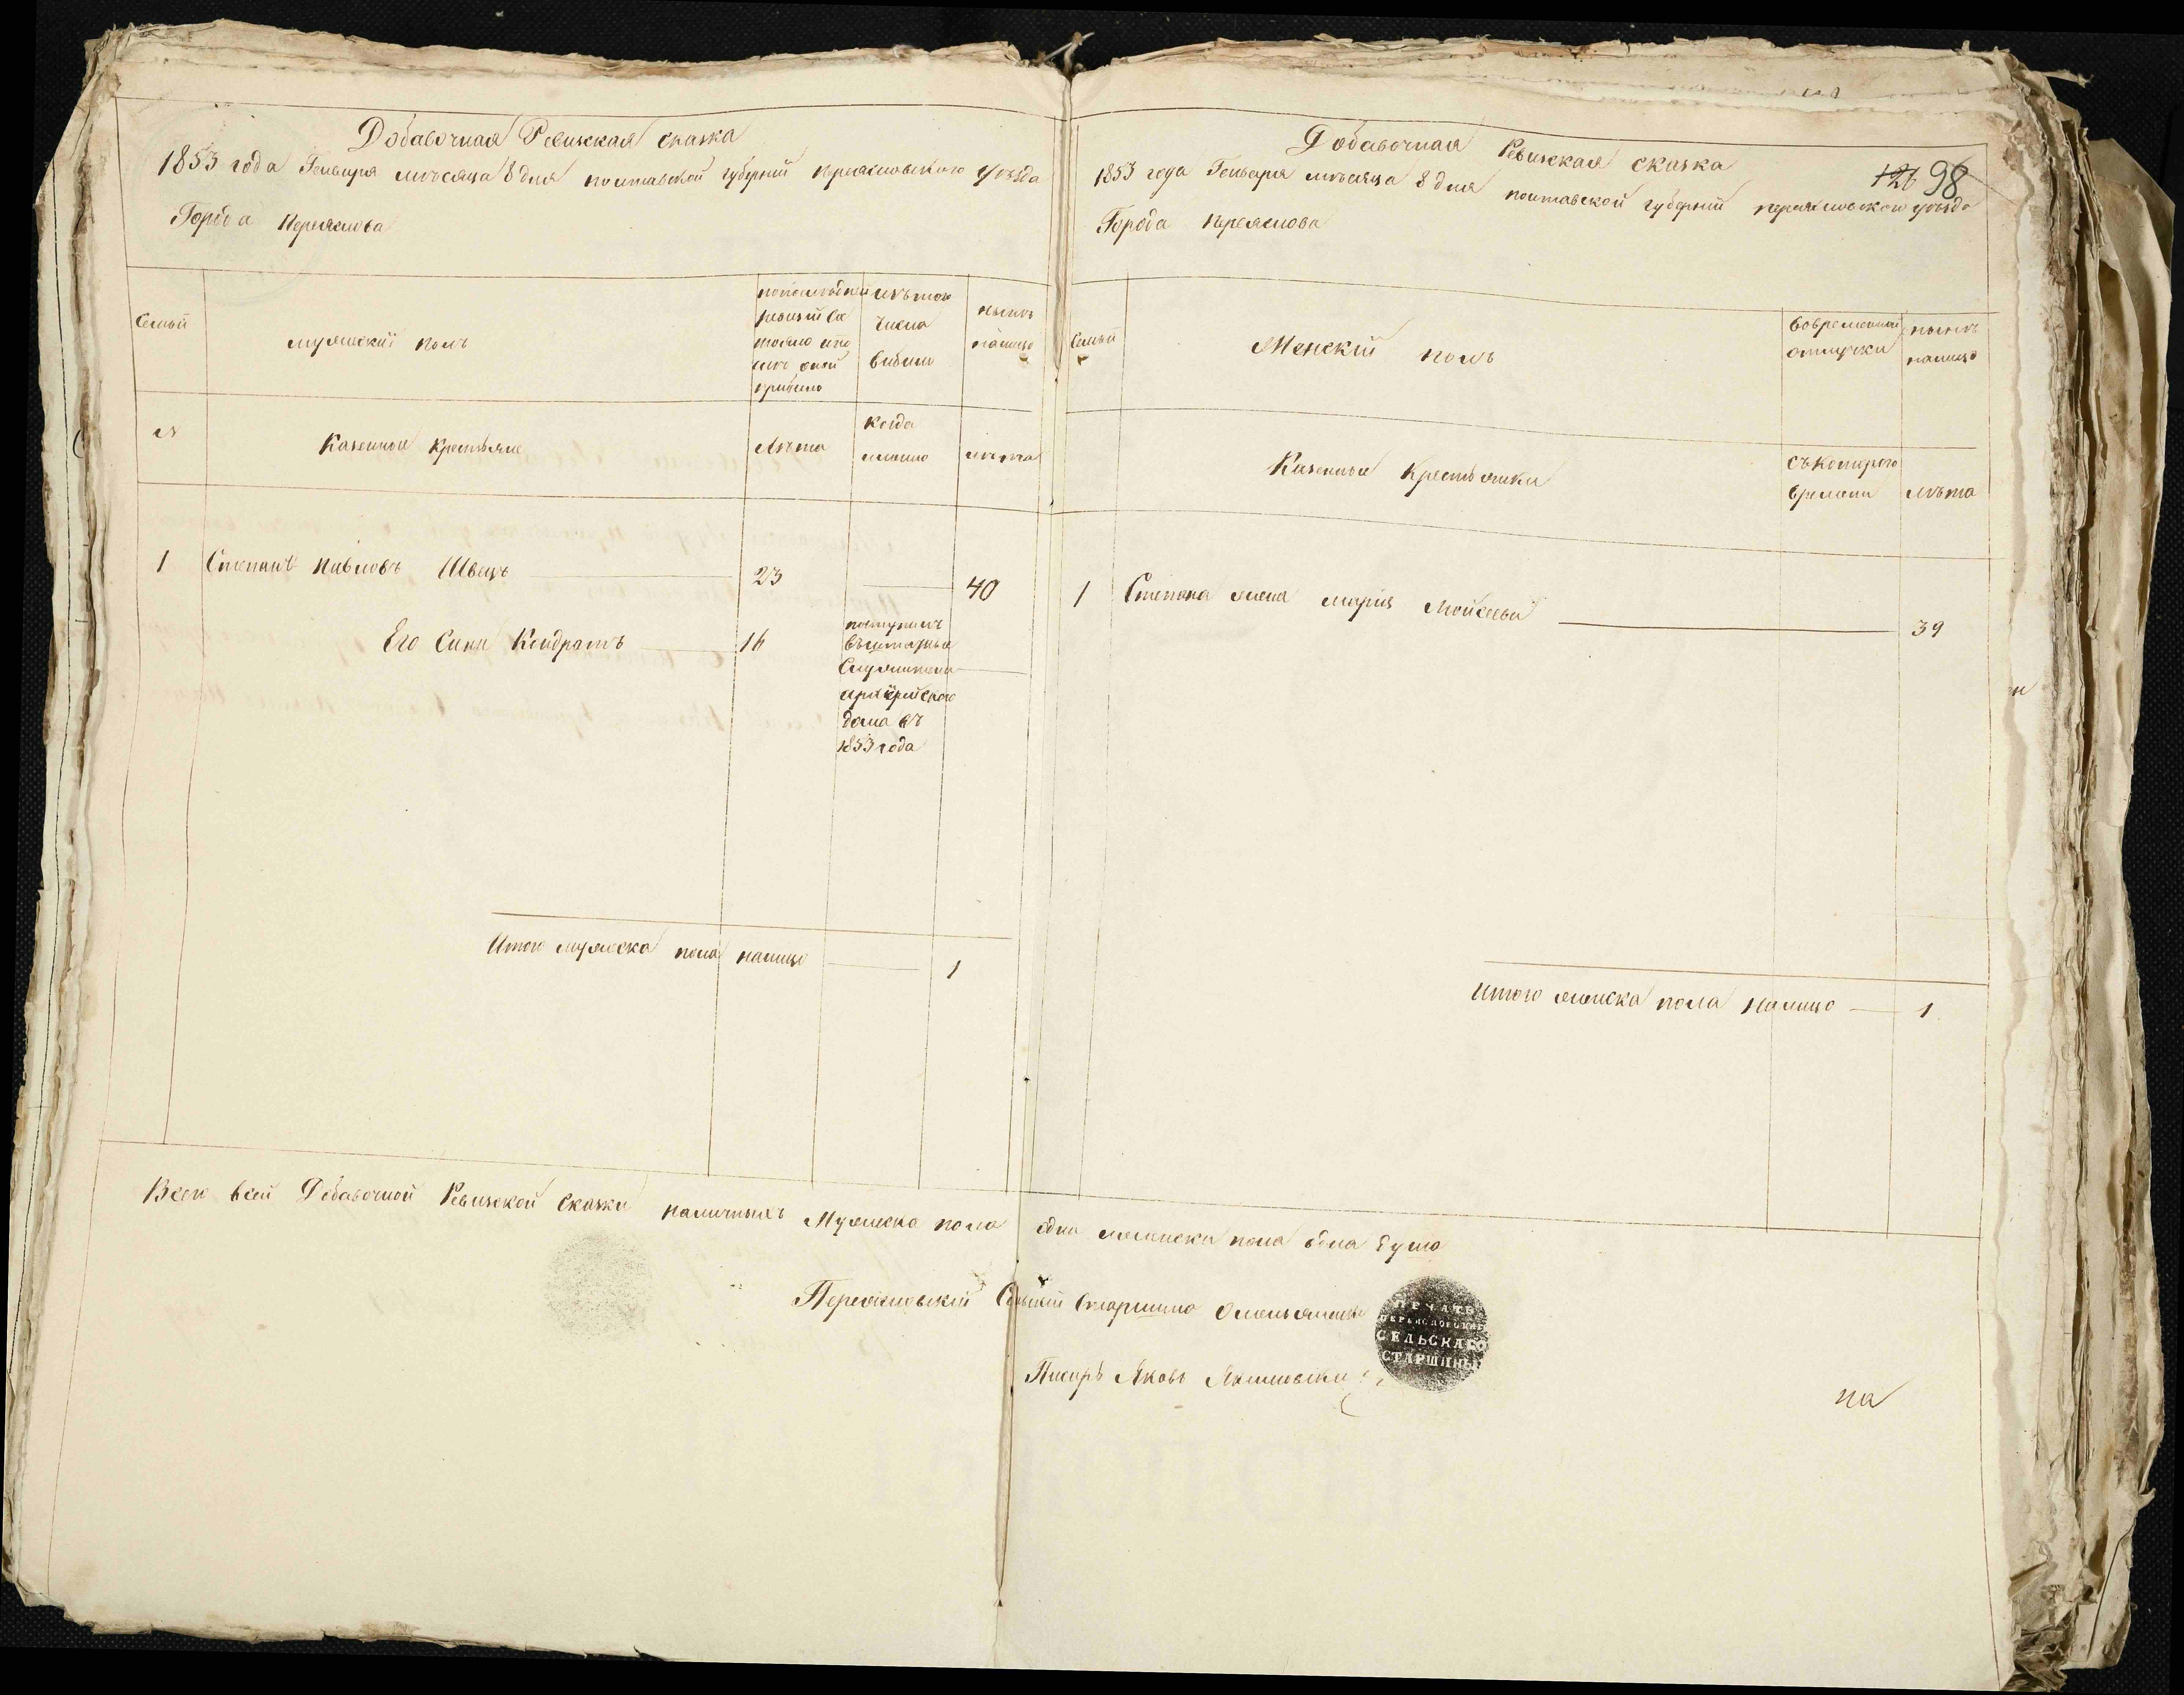 Добавочная Ревизская сказка
1853 года Генваря месяца 8 дня полтавской губернии переясловского уезда
Города Переяслова
Семьи
мужеский полъ
попоследней
ревизии со
стояло и по
сле оной
прибыло
изъ того
числа
выбыло
ныне
налицо
№
Казенные Крестьяне
Лѣта
когда
именно
лѣта
1 Степанъ Павловъ Швецъ 23 40
Его Синъ Кондратъ 16
поступилъ
въ штатные
Служители
архіерейского
дома въ
1853 года
Итого мужеска пола налицо 1
Добавочная Ревизская сказка
126 98
1853 года Генваря месяца 8 дня полтавской губернии переясловского уезда
Города Переяслова
Семьи
Женскій полъ
вовременной
отлучки
нынѣ
налицо
Казенные Крестьянки
съ которого
времени
лѣта
1 Степана жена марія Мойсеева 39
Итого женска пола налицо 1
Всего всей Добавочной Ревизской Сказки наличныхъ Мужеска пола одна женска пола одна душа
Переясловский Сельский Старшина
Писарь Яковъ
ПЕЧАТЬ
ПЕРЕЯСЛОВСКАГО
СЕЛЬСКАГО
СТАРШИНЫ
на